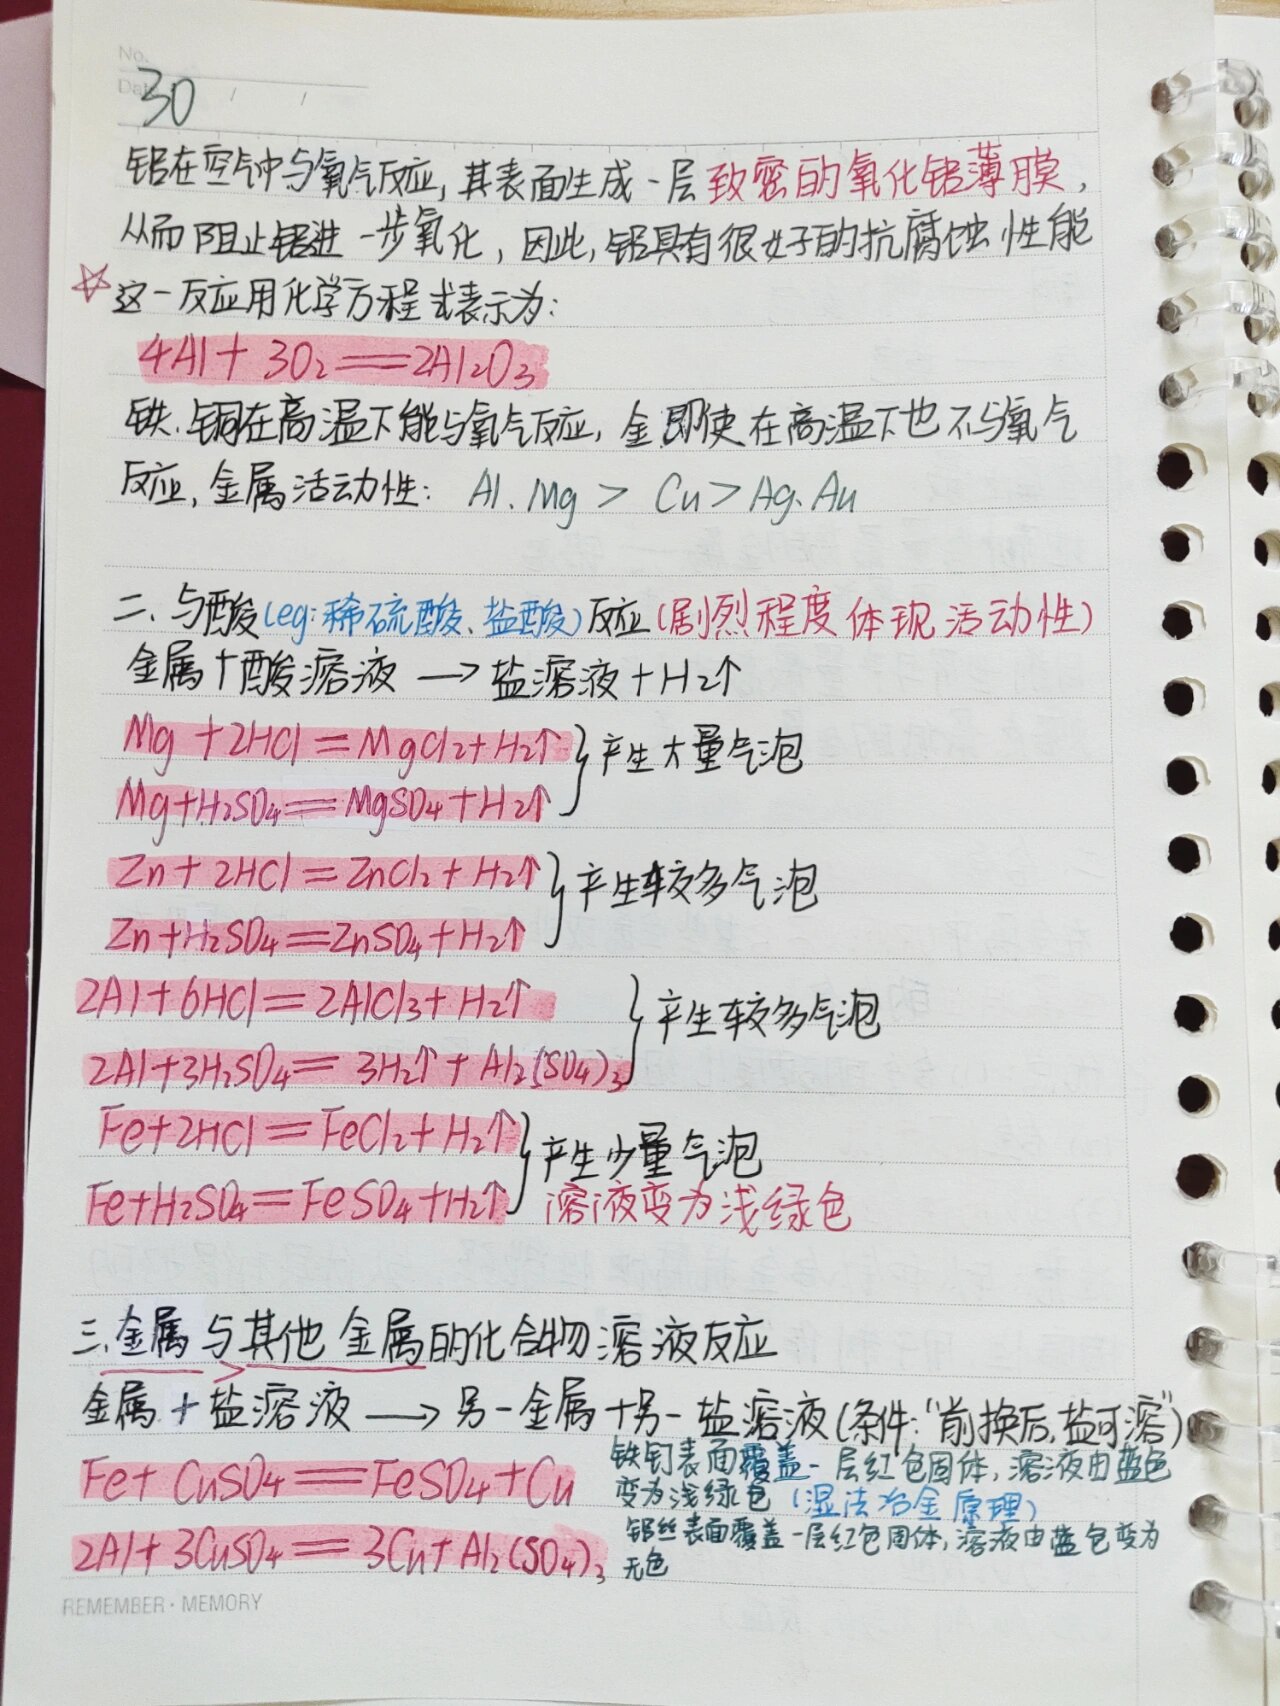 No.
Date
30
铝在空气中与氧气反应,其表面生成一层致密的氧化铝薄膜,
从而阻止铝进一步氧化,因此,铝具有很好的抗腐蚀性能
☆这一反应用化学方程式表示为:
4Al+3O₂══2Al₂O₃
铁、铜在高温下能与氧气反应,金即使在高温下也不与氧气
反应,金属活动性: Al、Mg > Cu > Ag、Au
二、与酸(eg:稀硫酸、盐酸)反应(剧烈程度体现活动性)
金属+酸溶液→盐溶液+H₂↑
Mg+2HCl=MgCl₂+H₂↑ }产生大量气泡
Mg+H₂SO₄══MgSO₄+H₂↑
Zn+2HCl=ZnCl₂+H₂↑ }产生较多气泡
Zn+H₂SO₄=ZnSO₄+H₂↑
2Al+6HCl=2AlCl₃+H₂↑ }产生较多气泡
2Al+3H₂SO₄=3H₂↑+Al₂(SO₄)₃
Fe+2HCl=FeCl₂+H₂↑ }产生少量气泡
Fe+H₂SO₄=FeSO₄+H₂↑ 溶液变为浅绿色
三、金属与其他金属的化合物溶液反应
>
金属+盐溶液→另一金属+另一盐溶液(条件:"前换后,盐可溶")
Fe+CuSO₄══FeSO₄+Cu 铁钉表面覆盖一层红色固体,溶液由蓝色
变为浅绿色(湿法冶金原理)
2Al+3CuSO₄══3Cu+Al₂(SO₄)₃ 铝丝表面覆盖一层红色固体,溶液由蓝色变为
无色
REMEMBER·MEMORY